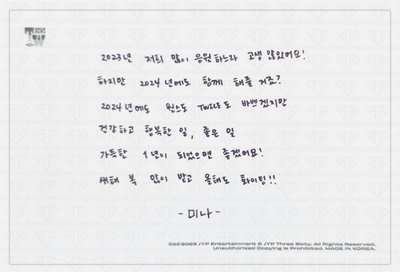 2023년 저희 많이 응원하느라 고생 많았어요!
하지만 2024년에도 함께 해줄 거죠?
2024년에도 원스도 TWICE도 바쁘겠지만
건강하고 행복한 일, 좋은 일
가득한 1년이 되었으면 좋겠어요!
새해 복 많이 받고 올해도 화이팅!!
-미나-
2022 JYP Entertainment & JYP Three Sixty. All Rights Reserved.
Unauthorized Copying is Prohibited. MADE IN KOREA.